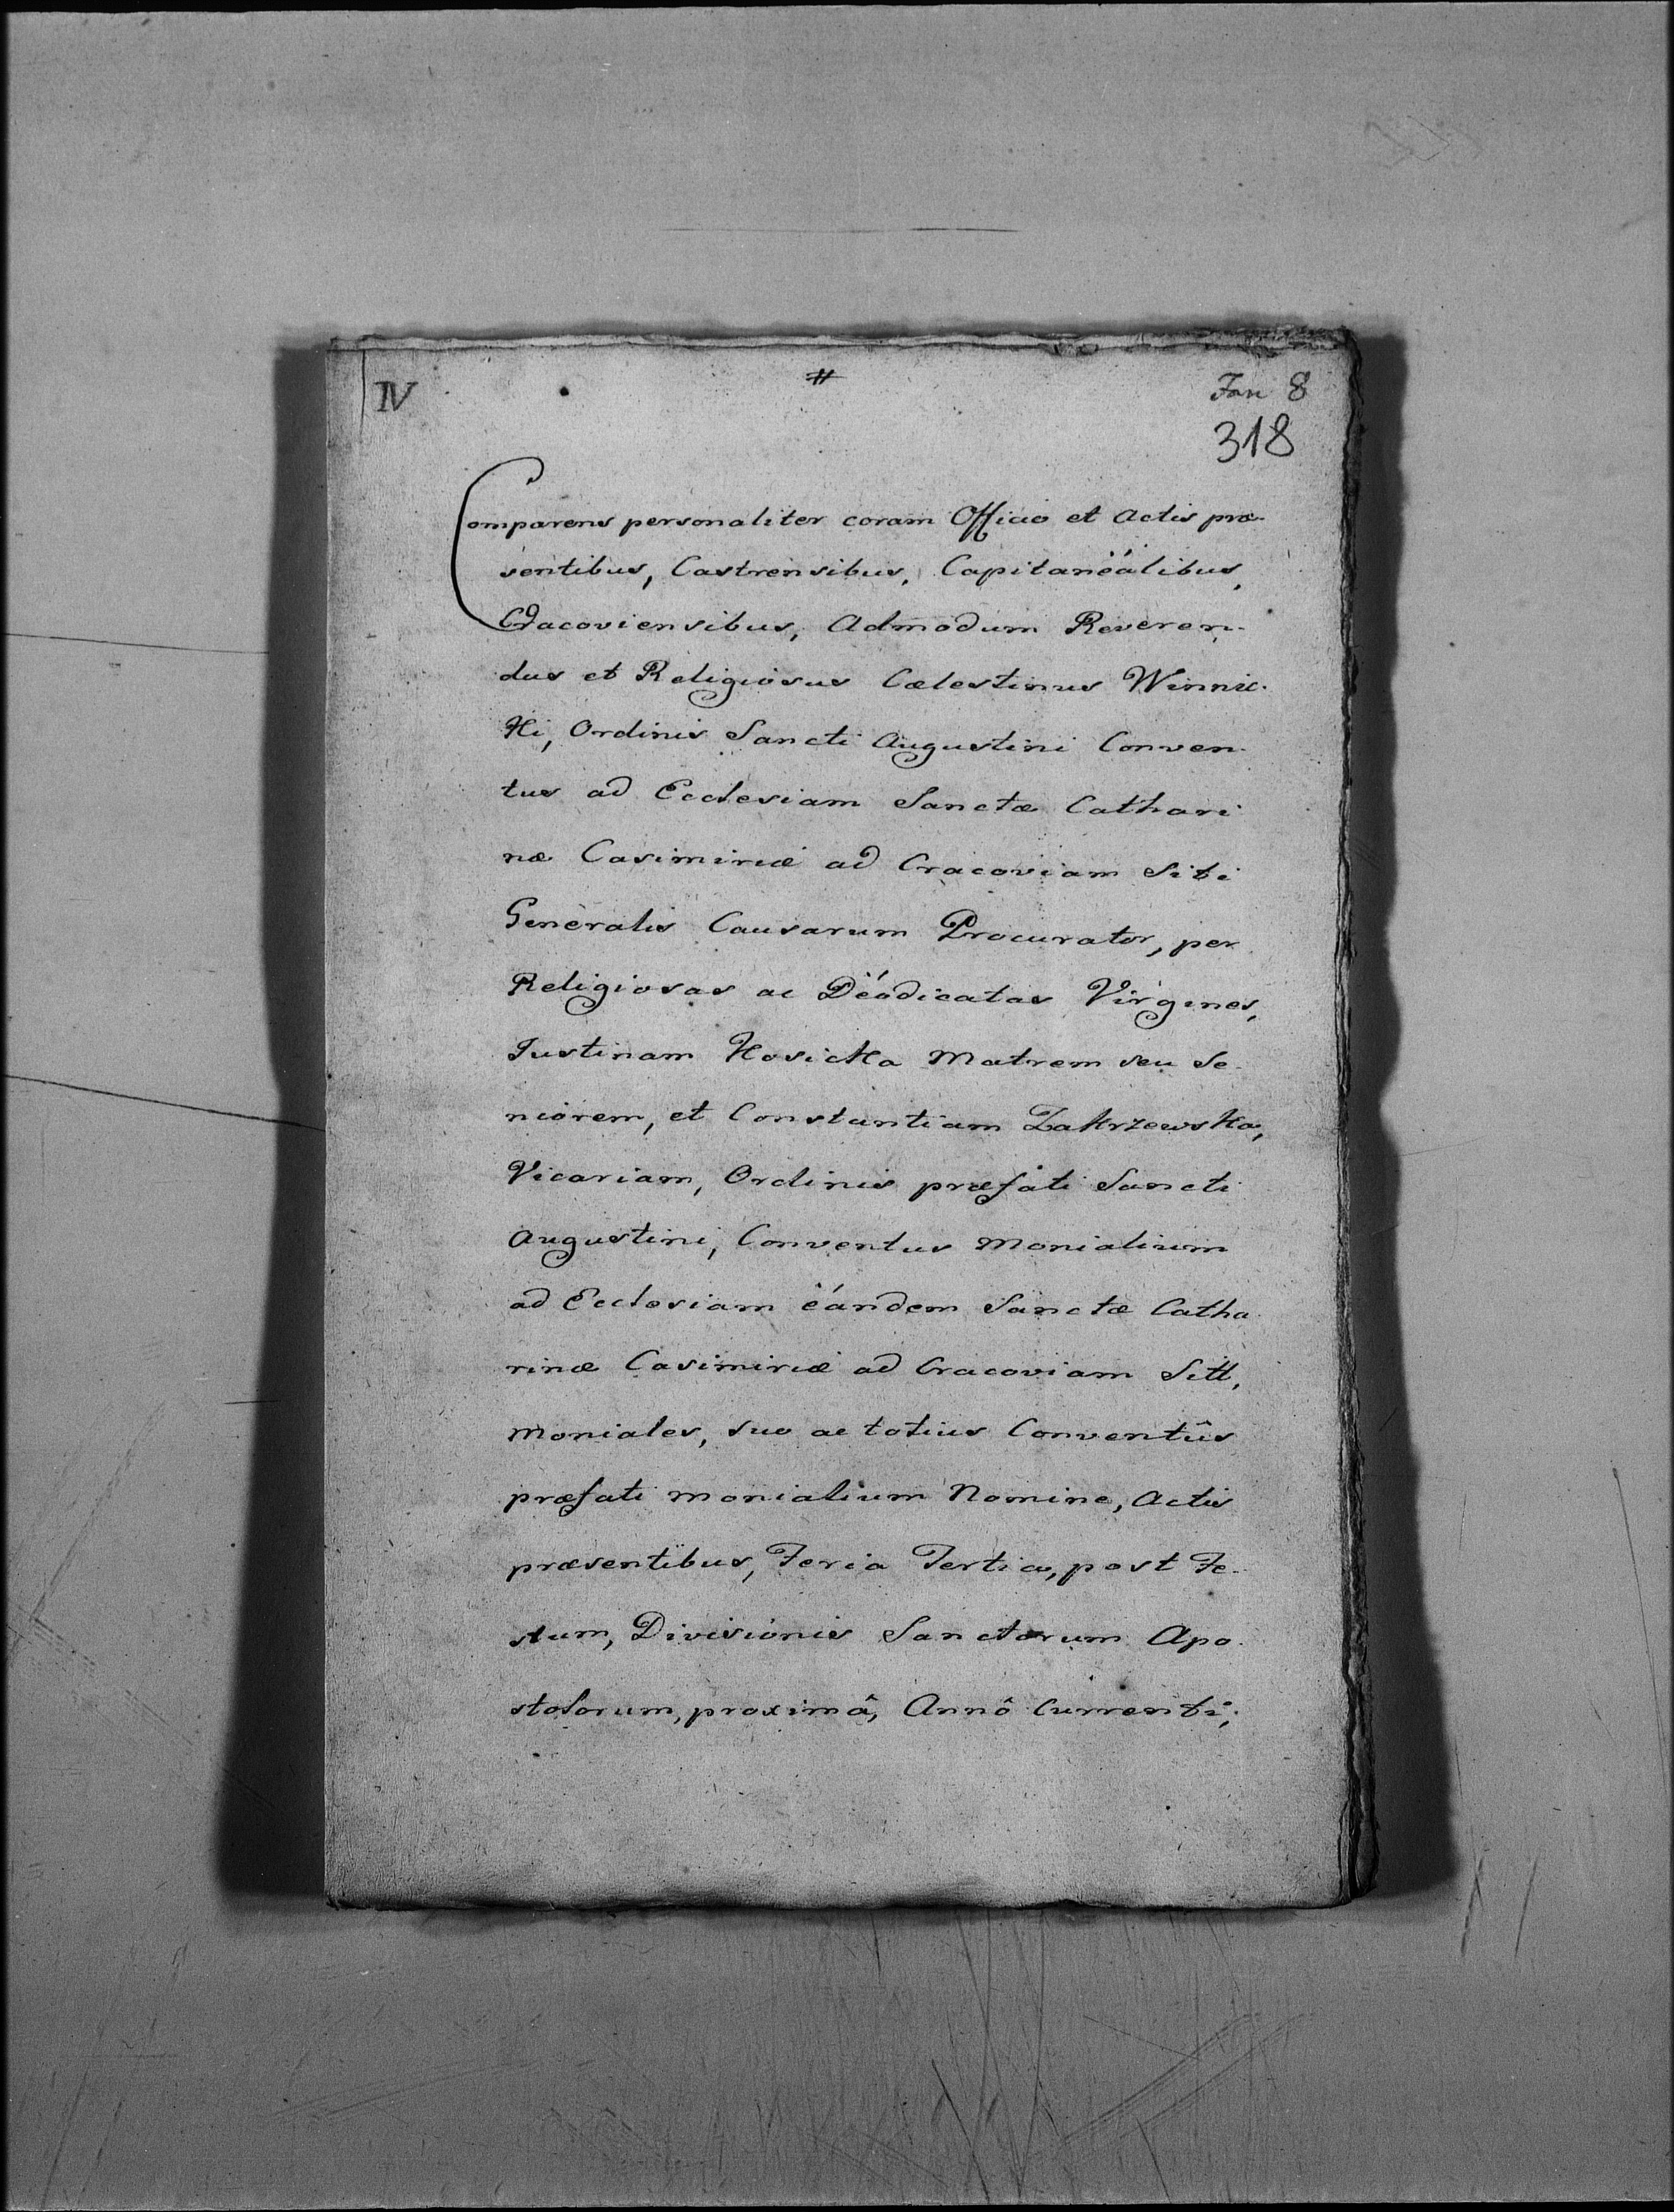 IV # Fan 8
318
Comparens personaliter coram Officio et Actis præ-
sentibus, Castrensibus, Capitanëálibus,
Cracoviensibus, Admodum Reveren-
dus et Religiosus Cælestinus Winnic-
ki, Ordinis Sancti Augustini Conven-
tus ad Ecclesiam Sanctæ Cathari
næ Casimiriæ ad Cracoviam Siti
Generalis Causarum Procurator, per
Religiosas ac Dëódicatas Virgines,
Justinam Kosicka Matrem seu Se-
niorem, et Constantiam Zakrzewska,
Vicariam, Ordinis præfati Sancti
Augustini, Conventus Monialium
ad Ecclesiam ëándem Sanctæ Catha-
rinæ Casimiriæ ad Cracoviam Sitt,
Moniales, suo ac totius Conventûs
præfati Monialium Nomine, Actis
præsentibus, Feria Tertia, post Fe-
stum, Divisionis Sanctorum Apo-
stolorum, proximâ, Annô Currenti,